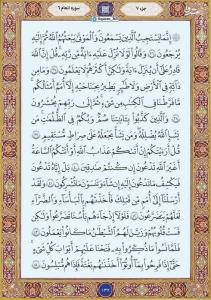 جزء ۷
سوره انعام ۶
إِنَّمَا يَسْتَجِيبُ الَّذِينَ يَسْمَعُونَ وَالْمَوْتَىٰ يَبْعَثُهُمُ اللَّهُ ثُمَّ إِلَيْهِ
يُرْجَعُونَ ﴿٣٦﴾ وَقَالُوا لَوْلَا نُزِّلَ عَلَيْهِ آيَةٌ مِنْ رَبِّهِ قُلْ إِنَّ اللَّهَ
قَادِرٌ عَلَىٰ أَنْ يُنَزِّلَ آيَةً وَلَٰكِنَّ أَكْثَرَهُمْ لَا يَعْلَمُونَ ﴿٣٧﴾ وَمَا مِنْ
دَابَّةٍ فِي الْأَرْضِ وَلَا طَائِرٍ يَطِيرُ بِجَنَاحَيْهِ إِلَّا أُمَمٌ أَمْثَالُكُمْ
مَا فَرَّطْنَا فِي الْكِتَابِ مِنْ شَيْءٍ ثُمَّ إِلَىٰ رَبِّهِمْ يُحْشَرُونَ ﴿٣٨﴾
وَالَّذِينَ كَذَّبُوا بِآيَاتِنَا صُمٌّ وَبُكْمٌ فِي الظُّلُمَاتِ مَنْ
يَشَإِ اللَّهُ يُضْلِلْهُ وَمَنْ يَشَأْ يَجْعَلْهُ عَلَىٰ صِرَاطٍ مُسْتَقِيمٍ ﴿٣٩﴾
قُلْ أَرَأَيْتَكُمْ إِنْ أَتَاكُمْ عَذَابُ اللَّهِ أَوْ أَتَتْكُمُ السَّاعَةُ
أَغَيْرَ اللَّهِ تَدْعُونَ إِنْ كُنْتُمْ صَادِقِينَ ﴿٤٠﴾ بَلْ إِيَّاهُ تَدْعُونَ
فَيَكْشِفُ مَا تَدْعُونَ إِلَيْهِ إِنْ شَاءَ وَتَنْسَوْنَ مَا تُشْرِكُونَ ﴿٤١﴾ وَلَقَدْ
أَرْسَلْنَا إِلَىٰ أُمَمٍ مِنْ قَبْلِكَ فَأَخَذْنَاهُمْ بِالْبَأْسَاءِ وَالضَّرَّاءِ
لَعَلَّهُمْ يَتَضَرَّعُونَ ﴿٤٢﴾ فَلَوْلَا إِذْ جَاءَهُمْ بَأْسُنَا تَضَرَّعُوا وَلَٰكِنْ
قَسَتْ قُلُوبُهُمْ وَزَيَّنَ لَهُمُ الشَّيْطَانُ مَا كَانُوا يَعْمَلُونَ ﴿٤٣﴾
فَلَمَّا نَسُوا مَا ذُكِّرُوا بِهِ فَتَحْنَا عَلَيْهِمْ أَبْوَابَ كُلِّ شَيْءٍ
حَتَّىٰ إِذَا فَرِحُوا بِمَا أُوتُوا أَخَذْنَاهُمْ بَغْتَةً فَإِذَا هُمْ مُبْلِسُونَ ﴿٤٤﴾
۱۳۲